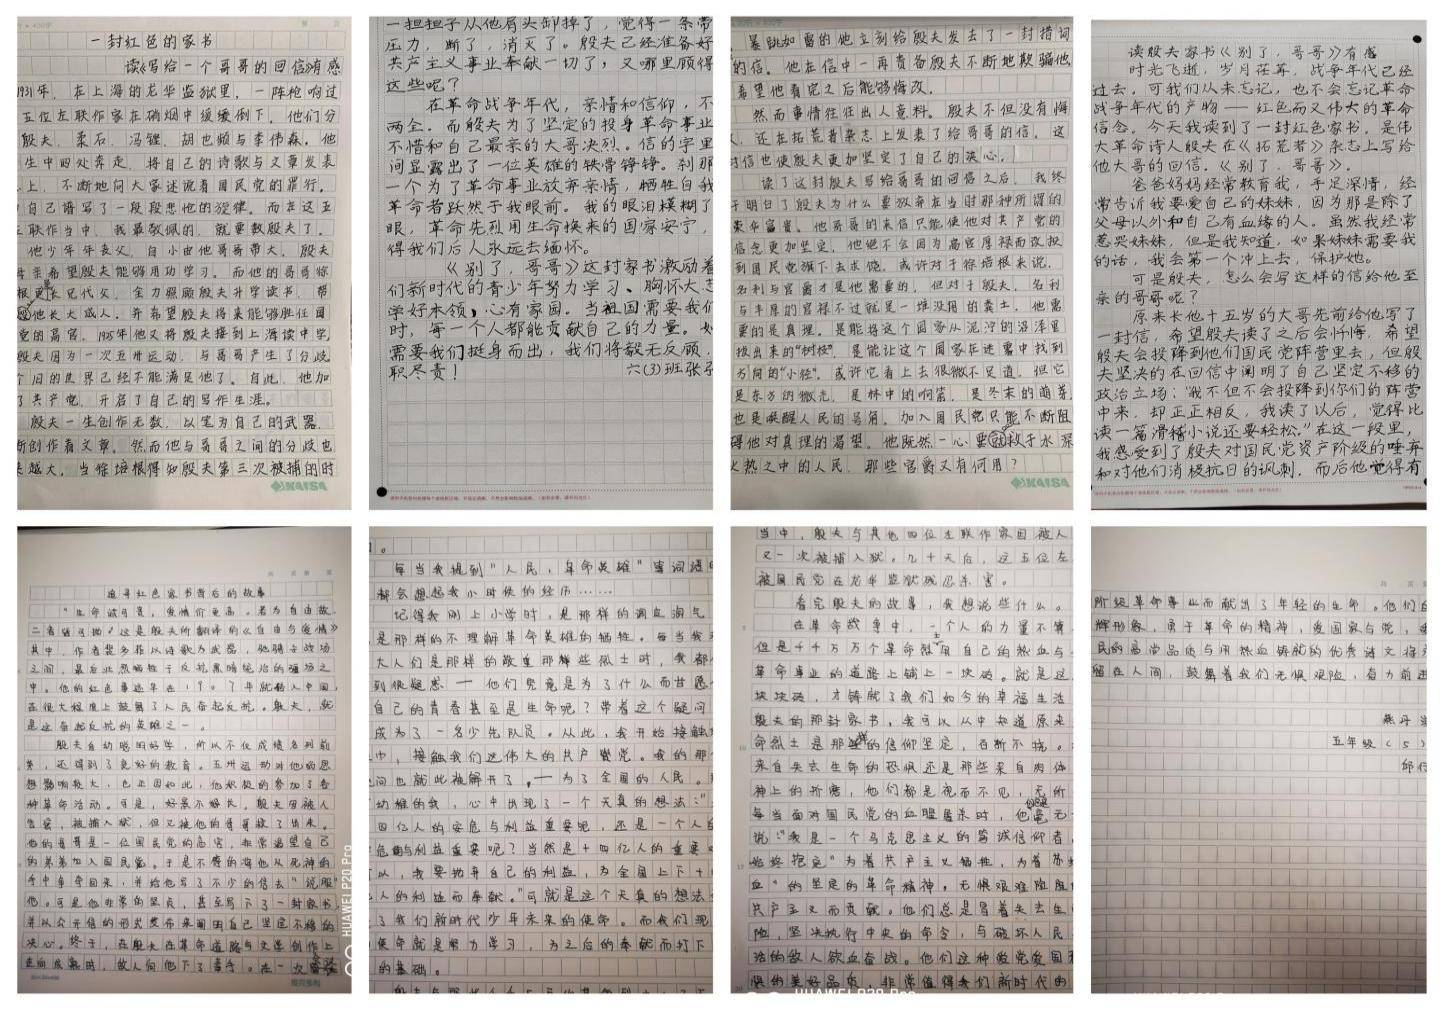 一封红色的家书
读《写给一个哥哥的回信》有感
1931年，在上海的龙华监狱里，一阵枪响过
五位左联作家在硝烟中缓缓倒下。他们分
殷夫、柔石、冯铿、胡也频与李伟森。他
生中四处奔走，将自己的诗歌与文章发表
上，不断地向大家述说着国民党的罪行。
自己谱写了一段段悲怆的旋律。而在这五
联作当中，我最敬佩的，就要数殷夫了。
他少年年丧父，自小由他哥哥带大，殷夫
母亲希望殷夫能够用功学习。而他的哥哥徐
兄代父，全力照顾殷夫升学读书，帮
他长大成人。并希望殷夫将来能够胜任国
党的高官。1925年他又将殷夫接到上海读中学，
殷夫因为一次五卅运动，与哥哥产生了分歧
个旧的世界已经不能满足他了。自此，他加
了共产党，开启了自己的写作生涯。
殷夫一生创作无数，以笔为自己的武器，
断创作着文章。然而他与哥哥之间的分歧也
越大。当徐培根得知殷夫第三次被捕的时
KAISA
一担担子从他肩头卸掉了，觉得一条常
压力，断了，消灭了。殷夫已经准备好
共产主义事业奉献一切了，又哪里顾得
这些呢？
在革命战争年代，亲情和信仰，不
两全。而殷夫为了坚定的投身革命事业
不惜和自己最亲的大哥决烈。信的字里
间显露出了一位英雄的铁骨铮铮。刹那
一个为了革命事业放弃亲情，牺牲自我
革命者跃然于我眼前。我的眼泪模糊了
眼，革命先烈用生命换来的国家安宁，
得我们后人永远去缅怀。
《别了，哥哥》这封家书激励着
们新时代的青少年努力学习、胸怀大志
学好本领，心有家园。当祖国需要我们
时，每一个人都能贡献自己的力量。如
需要我们挺身而出，我们将毅无反顾，
职尽责！
六(3)班张
暴跳如雷的他立刻给殷夫发去了一封措词
的信。他在信中一再责备殷夫不断地欺骗他
希望他看完之后能够悔改。
然而事情往往出人意料。殷夫不但没有悔
，还在拓荒者杂志上发表了给哥哥的信。这
封信也使殷夫更加坚定了自己的决心。
读了这封殷夫写给哥哥的回信之后，我终
于明白了殷夫为什么要放弃在当时那种所谓的
荣华富贵。他哥哥的来信只能使他对共产党的
信念更加坚定，他绝不会因为高官厚禄而改投
到国民党旗下去求饶。或许对于徐培根来说，
名利与官爵才是他需要的，但对于殷夫，名利
与丰厚的官禄不过就是一堆没用的粪土，他需
要的是真理。是能将这个国家从泥泞的沼泽里
拔出来的“树枝”，是能让这个国家在迷雾中找到
方向的“小径”，或许它看上去很微不足道，但它
是东方的微光，是林中的响箭，是冬末的萌芽
也是唤醒人民的号角。加入国民党只能不断阻
碍他对真理的渴望。他既然一心要拯救于水深
火热之中的人民，那些官爵又有何用？
KAISA
读殷夫家书《别了，哥哥》有感
时光飞逝，岁月荏苒，战争年代已经
过去，可我们从未忘记，也不会忘记革命
战争年代的产物——红色而又伟大的革命
信念。今天我读到了一封红色家书，是伟
大革命诗人殷夫在《拓荒者》杂志上写给
他大哥的回信。《别了，哥哥》。
爸爸妈妈经常教育我，手足深情，经
常告诉我要爱自己的妹妹，因为那是除了
父母以外和自己有血缘的人。虽然我经常
惹哭妹妹，但是我知道，如果妹妹需要我
的话，我会第一个冲上去，保护她。
可是殷夫，怎么会写这样的信给他至
亲的哥哥呢？
原来长他十五岁的大哥先前给他写了
一封信，希望殷夫读了之后会忏悔，希望
殷夫会投降到他们国民党阵营里去，但殷
夫坚决的在回信中阐明了自己坚定不移的
政治立场：“我不但不会投降到你们的阵营
中来，却正正相反，我读了以后，觉得比
读一篇滑稽小说还要轻松。”在这一段里，
我感受到了殷夫对国民党资产阶级的唾弃
和对他们消极抗日的讽刺。而后他觉得有
追寻红色家书背后的故事
“生命诚可贵，爱情价更高。若为自由故，
二者皆可抛”这是殷夫所翻译的《自由与爱情》
其中，作者裴多菲以诗歌为武器，驰骋于战场
之间，最后壮烈牺牲于反抗黑暗统治的疆场之
中。他的红色事迹早在1907年就传入中国，
在很大程度上鼓舞了人民奋起反抗。殷夫，就
是这奋起反抗的英雄之一。
殷夫自幼聪明好学，所以不仅成绩名列前
茅，还得到了良好的教育。五卅运动对他的思
想影响较大，也正因如此，他积极的参加了各
种革命活动。可是，好景不长，殷夫因被人
告密，被捕入狱，但又被他的哥哥救了出来。
他的哥哥是一位国民党的高官，非常渴望自己
的弟弟加入国民党。于是不费的将他从死神的
手中争夺回来，并给他写了不少的信去“说服”
他。可是他非常的坚贞，甚至写下了一封家书
并以公开信的形式发布来阐明自己坚定不移的
决心。终于，在殷夫在革命道路与文学创作上
走向成熟时，敌人向他下了毒手。在一次
HUAWEI P20 Pro
。
每当我提到“人民，革命英雄”等词语时
都会想起我小时候的经历……
记得我刚上小学时，是那样的调皮淘气
是那样的不理解革命英雄的牺牲。每当我
大人们是那样的敬重那些烈士时，我都
到很疑惑——他们究竟是为了什么而甘愿
自己的青春甚至是生命呢？带着这个疑问
成为了一名少先队员。从此，我开始接触
中，接触我们这伟大的共产党。我的那
问也就此被解开了。——为了全国的人民。
幼稚的我，心中出现了一个天真的想法：“
四亿人的安危与利益重要呢，还是一个人的
危与利益重要呢？当然是十四亿人的重要
以，我要抛弃自己的利益，为全国上下十
人的利益而奉献。”可就是这个天真的想法
了我们新时代少年未来的使命。而我们现
使命就是努力学习，为之后的奉献而打下
的基础。
当中，殷夫与其他四位左联作家因被人
又一次被捕入狱。九十天后，这五位左
被国民党在龙华监狱残忍杀害。
看完殷夫的故事，我想说些什么。
在革命战争中，一个人的力量不算
但是千千万万个革命烈士用自己的热血与
革命事业的道路上铺上一块砖。就是这
块块砖，才铸就了我们如今的幸福生活
殷夫的那封家书，我可以从中知道原来
命烈士是那样的信仰坚定，百断不挠。
来自失去生命的恐惧还是那些来自肉体
神上的折磨，他们都是视而不见，无所
每当面对国民党的血腥屠杀时，他毫无
说：“我是一个马克思主义的笃诚信仰者
始终抱定“为着共产主义牺牲，为着苏
血”的坚定的革命精神。无惧艰难险阻
共产主义而贡献。他们总是冒着失去生
险，坚决执行中央的命令，与破坏人民
活的敌人欲血奋战。他们这种爱党爱国
决的美好品质，非常值得我们新时代的
HUAWEI P20 Pro
阶级革命事业而献出了年轻的生命。他们的
辉形象，勇于革命的精神，爱国家与党，
民的高尚品质与用热血铸就的优秀诗文将
留在人间，鼓舞着我们无惧艰险，奋力前进
五年级（5）